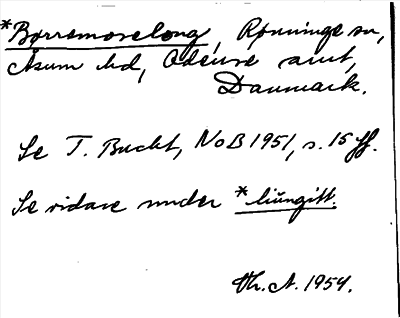 *Børremoselong, Rønninge sn,
Åsum hd, Odense amt,
Danmark.
Se T. Bucht, NoB 1951, s. 15 ff.
Se vidare under *liungitt.
Th. A. 1954.